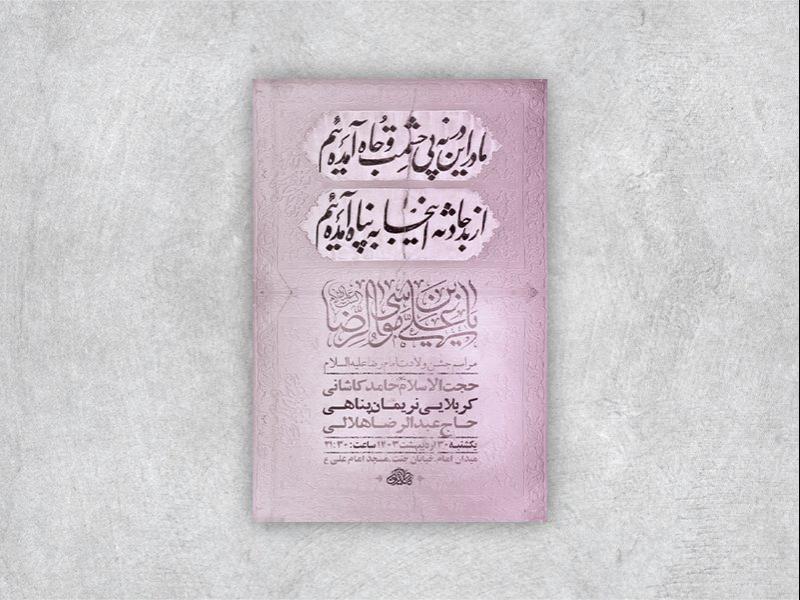 ما در این در نه پی حشمت و جاه آمده‌ایم
از بد حادثه اینجا به پناه آمده‌ایم
یا علی بن موسی الرضا
مراسم جشن ولادت امام رضا علیه السلام
حجت الاسلام حامد کاشانی
کربلایی نریمان پناهی
حاج عبدالرضا هلالی
یکشنبه ۳۰ اردیبهشت ۱۴۰۳ ساعت: ۲۱:۳۰
میدان امام، خیابان جنت، مسجد امام علی ع